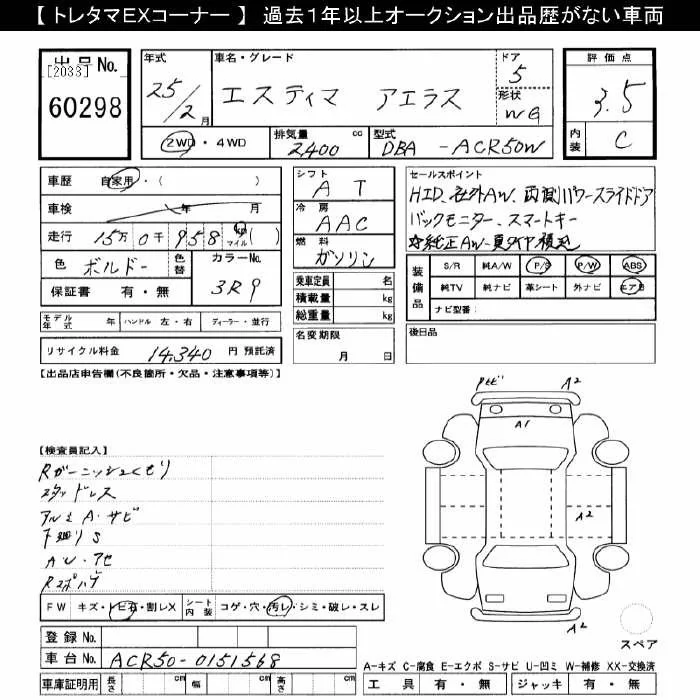 【 トレタマEXコーナー 】 過去1年以上オークション出品歴がない車両
出品No.
[2033]
60298
年式
25/2月
車名・グレード
エスティマ アエラス
ドア
5
形状
WG
評価点
3.5
内装
C
2WD・4WD
排気量 cc
2,400
型式
DBA -ACR50W
車歴 自家用・( )
車検 年 月
走行 15万0千958 km マイル ( )
色 ボルドー
色替
カラーNo.
3R9
保証書 有・無
シフト
AT
冷房
AAC
燃料
ガソリン
乗車定員 名
積載量 kg
総重量 kg
セールスポイント
HID、社外AW、両側パワースライドドア
バックモニター、スマートキー
純正AW 夏タイヤ積込
装備品
S/R 純A/W P/S P/W ABS
純TV 純ナビ 革シート 外ナビ エアB
ナビ型番:
モデル年式 年 ハンドル 左・右 ディーラー・並行
リサイクル料金 14,340 円 預託済
名変期限
月 日
後日品
【出品店申告欄(不良箇所・欠品・注意事項等)】
【検査員記入】
Rガーニッシュくもり
スタッドレス
アルミA・サビ
下廻りS
AW・アセ
トビ A2
A1
A2
A2
FW キズ・トビ石・割レX
シート内装 コゲ・穴・汚レ・シミ・破レ・スレ
登録No.
車台No. ACR50-0151568
車庫証明用 長さ cm 幅 cm 高さ cm
スペア
A-キズ C-腐食 E-エクボ S-サビ U-凹ミ W-補修 XX-交換済
工具 有・無 ジャッキ 有・無